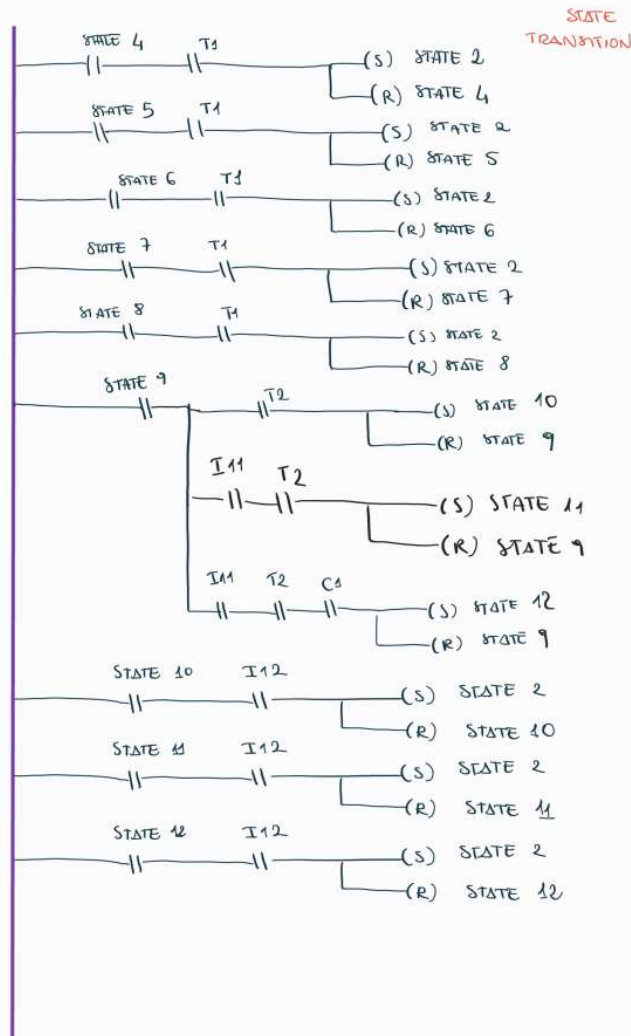 STATE
TRANSITION
STATE 4 T1 (S) STATE 2
(R) STATE 4
STATE 5 T1 (S) STATE 2
(R) STATE 5
STATE 6 T1 (S) STATE 2
(R) STATE 6
STATE 7 T1 (S) STATE 2
(R) STATE 7
STATE 8 T1 (S) STATE 2
(R) STATE 8
STATE 9 T2 (S) STATE 10
(R) STATE 9
I11 T2 (S) STATE 11
(R) STATE 9
I11 T2 C1 (S) STATE 12
(R) STATE 9
STATE 10 I12 (S) STATE 2
(R) STATE 10
STATE 11 I12 (S) STATE 2
(R) STATE 11
STATE 12 I12 (S) STATE 2
(R) STATE 12